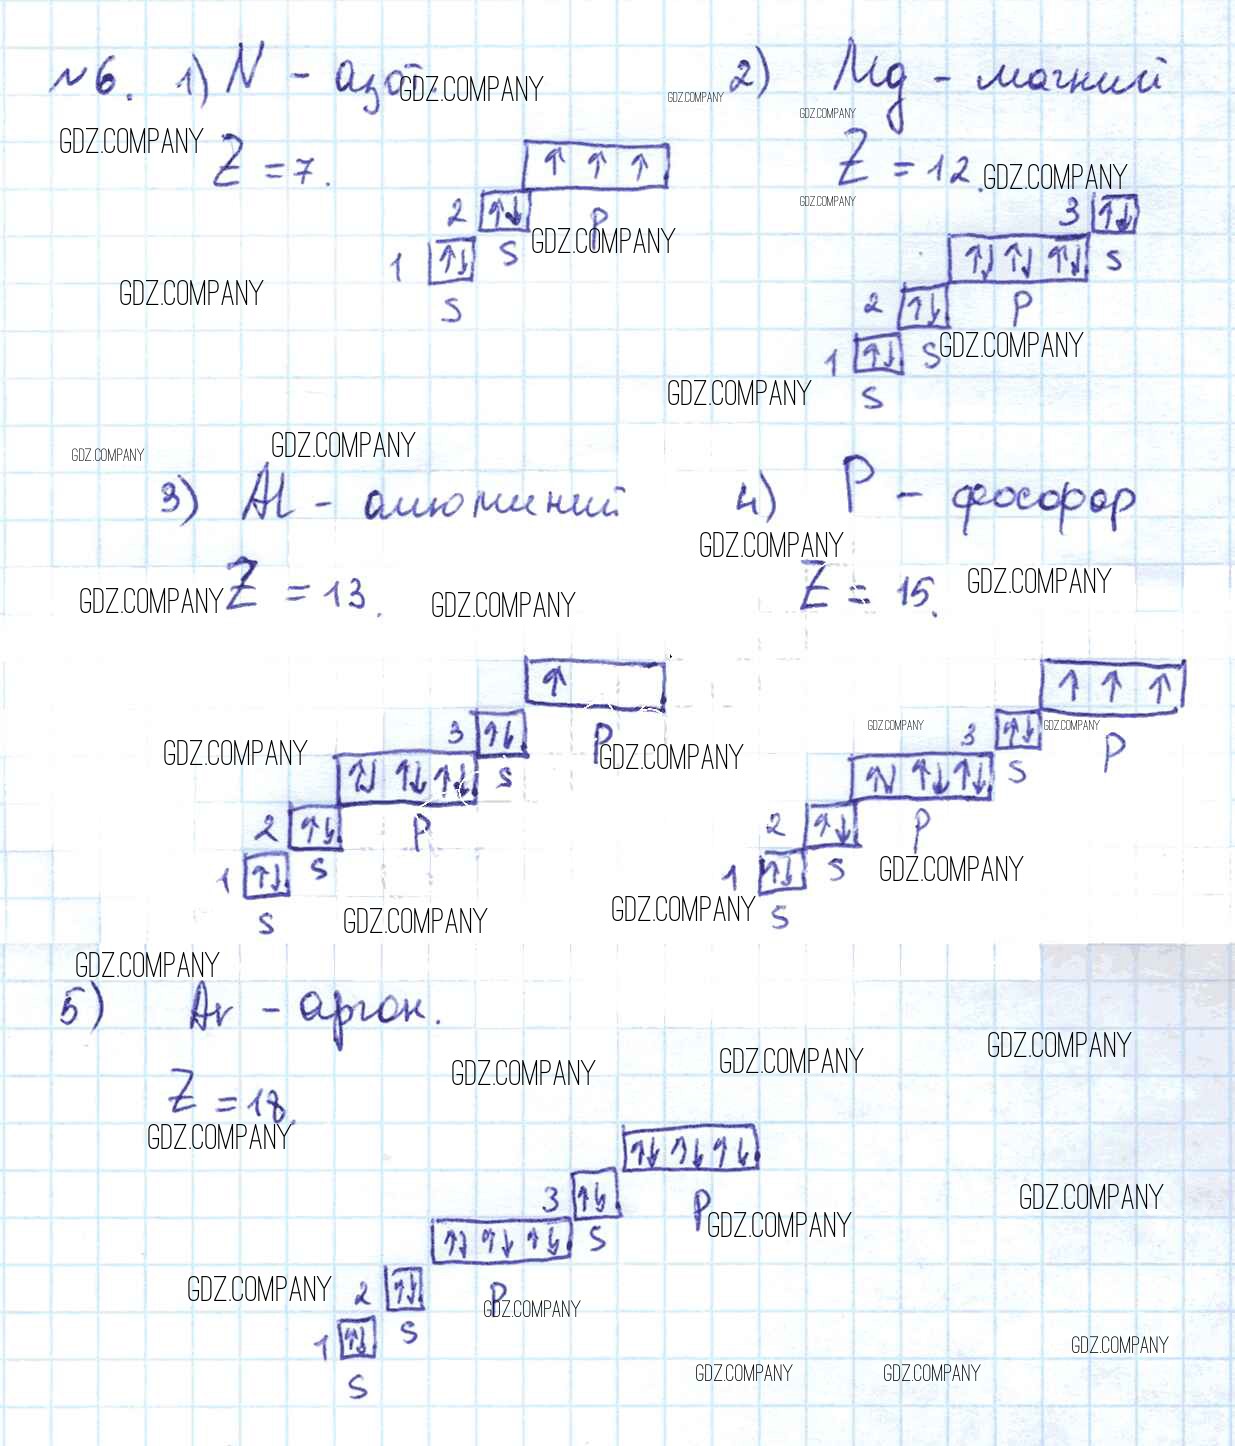 №6. 1) N - азот. GDZ.COMPANY 2) Mg - магний
GDZ.COMPANY GDZ.COMPANY
GDZ.COMPANY Z = 7. Z = 12. GDZ.COMPANY
GDZ.COMPANY
↑ ↑ ↑
2 ↑↓ P 3 ↑↓
1 ↑↓ S GDZ.COMPANY ↑↓ ↑↓ ↑↓ S
GDZ.COMPANY S 2 ↑↓ P
1 ↑↓ S GDZ.COMPANY
GDZ.COMPANY S
GDZ.COMPANY GDZ.COMPANY
3) Al - алюминий 4) P - фосфор
GDZ.COMPANY
GDZ.COMPANY Z = 13. GDZ.COMPANY Z = 15. GDZ.COMPANY
↑ ↑ ↑ ↑
3 ↑↓ P 3 ↑↓ P
GDZ.COMPANY GDZ.COMPANY GDZ.COMPANY GDZ.COMPANY
↑↓ ↑↓ ↑↓ S ↑↓ ↑↓ ↑↓ S
2 ↑↓ P 2 ↑↓ P
1 ↑↓ S 1 ↑↓ S GDZ.COMPANY
S GDZ.COMPANY GDZ.COMPANY S
GDZ.COMPANY
5) Ar - аргон.
GDZ.COMPANY GDZ.COMPANY GDZ.COMPANY
Z = 18.
GDZ.COMPANY
↑↓ ↑↓ ↑↓
3 ↑↓ P GDZ.COMPANY
↑↓ ↑↓ ↑↓ S GDZ.COMPANY
GDZ.COMPANY 2 ↑↓ P GDZ.COMPANY
1 ↑↓ S GDZ.COMPANY
S GDZ.COMPANY GDZ.COMPANY